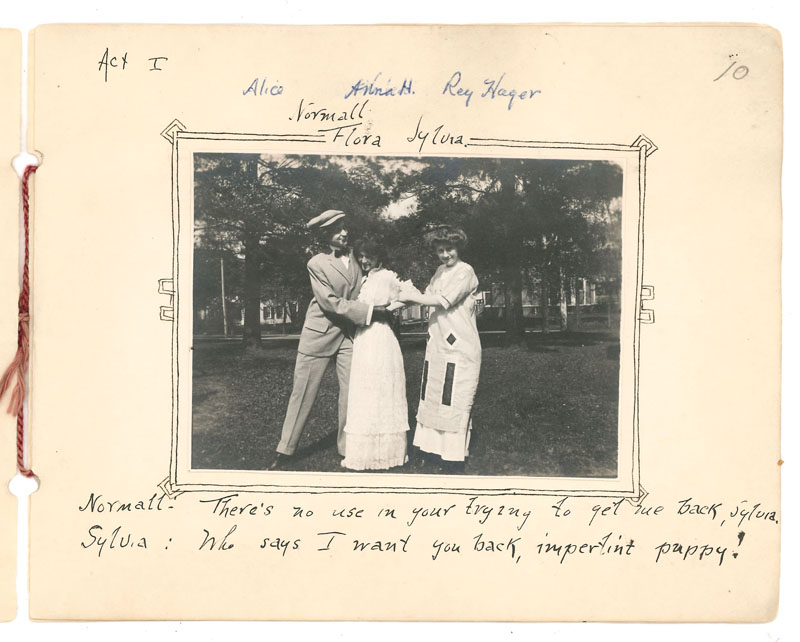 Act I
10
Alice Anna H. Rey Hager
Normall
Flora Sylvia.
Normall- There's no use in your trying to get me back, Sylvia.
Sylvia: Who says I want you back, impertint puppy!